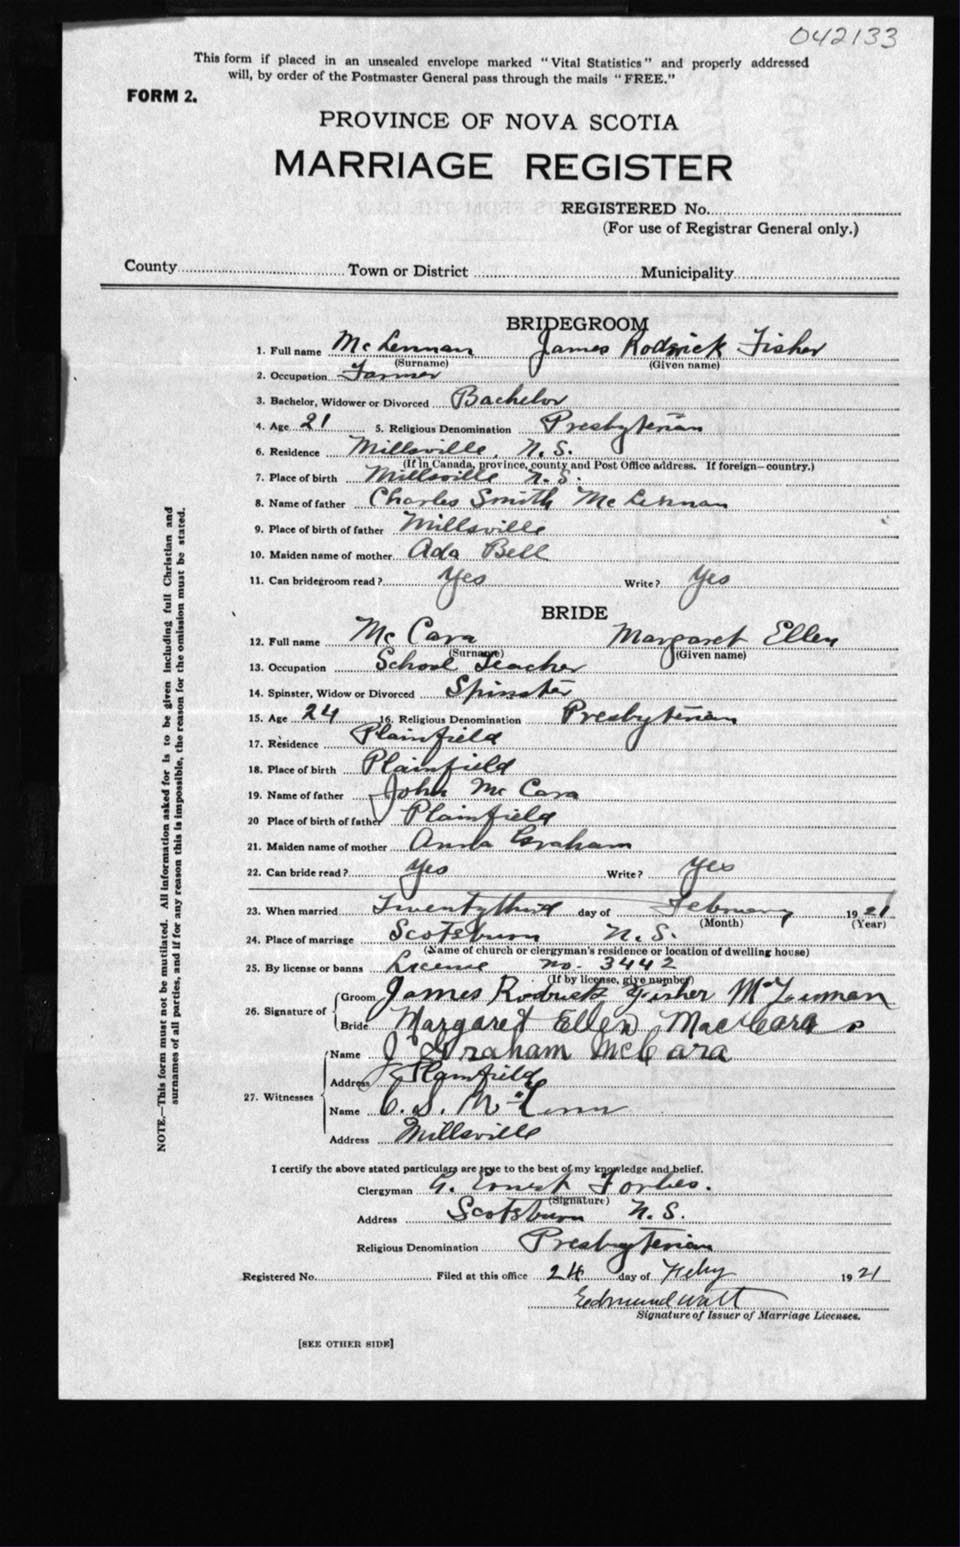 042133
This form if placed in an unsealed envelope marked "Vital Statistics" and properly addressed
will, by order of the Postmaster General pass through the mails "FREE."
FORM 2.
PROVINCE OF NOVA SCOTIA
MARRIAGE REGISTER
REGISTERED No.
(For use of Registrar General only.)
County Town or District Municipality
BRIDEGROOM
1. Full name McLennan James Rodrick Fisher
(Surname) (Given name)
2. Occupation Farmer
3. Bachelor, Widower or Divorced Bachelor
4. Age 21 5. Religious Denomination Presbyterian
6. Residence Millsville, N.S.
(If in Canada, province, county and Post Office address. If foreign—country.)
7. Place of birth Millsville N.S.
8. Name of father Charles Smith McLennan
9. Place of birth of father Millsville
10. Maiden name of mother Ada Bell
11. Can bridegroom read? Yes Write? Yes
BRIDE
12. Full name McCara Margaret Ellen
(Surname) (Given name)
13. Occupation School Teacher
14. Spinster, Widow or Divorced Spinster
15. Age 24 16. Religious Denomination Presbyterian
17. Residence Plainfield
18. Place of birth Plainfield
19. Name of father John McCara
20 Place of birth of father Plainfield
21. Maiden name of mother Anna Graham
22. Can bride read? Yes Write? Yes
23. When married Twentythird day of February 1921
(Month) (Year)
24. Place of marriage Scotsburn N.S.
(Name of church or clergyman's residence or location of dwelling house)
25. By license or banns License no. 3442
(If by license, give number)
26. Signature of Groom James Rodrick Fisher McLennan
Bride Margaret Ellen MacCara
27. Witnesses Name J Graham McCara
Address Plainfield
Name C. S. McLenn
Address Millsville
I certify the above stated particulars are true to the best of my knowledge and belief.
Clergyman G. Ernest Forbes.
(Signature)
Address Scotsburn N.S.
Religious Denomination Presbyterian
Registered No. Filed at this office 24 day of Feby 1921
Edmund Watt
Signature of Issuer of Marriage Licenses.
[SEE OTHER SIDE]
NOTE.—This form must not be mutilated. All information asked for is to be given including full Christian and
surnames of all parties, and if for any reason this is impossible, the reason for the omission must be stated.